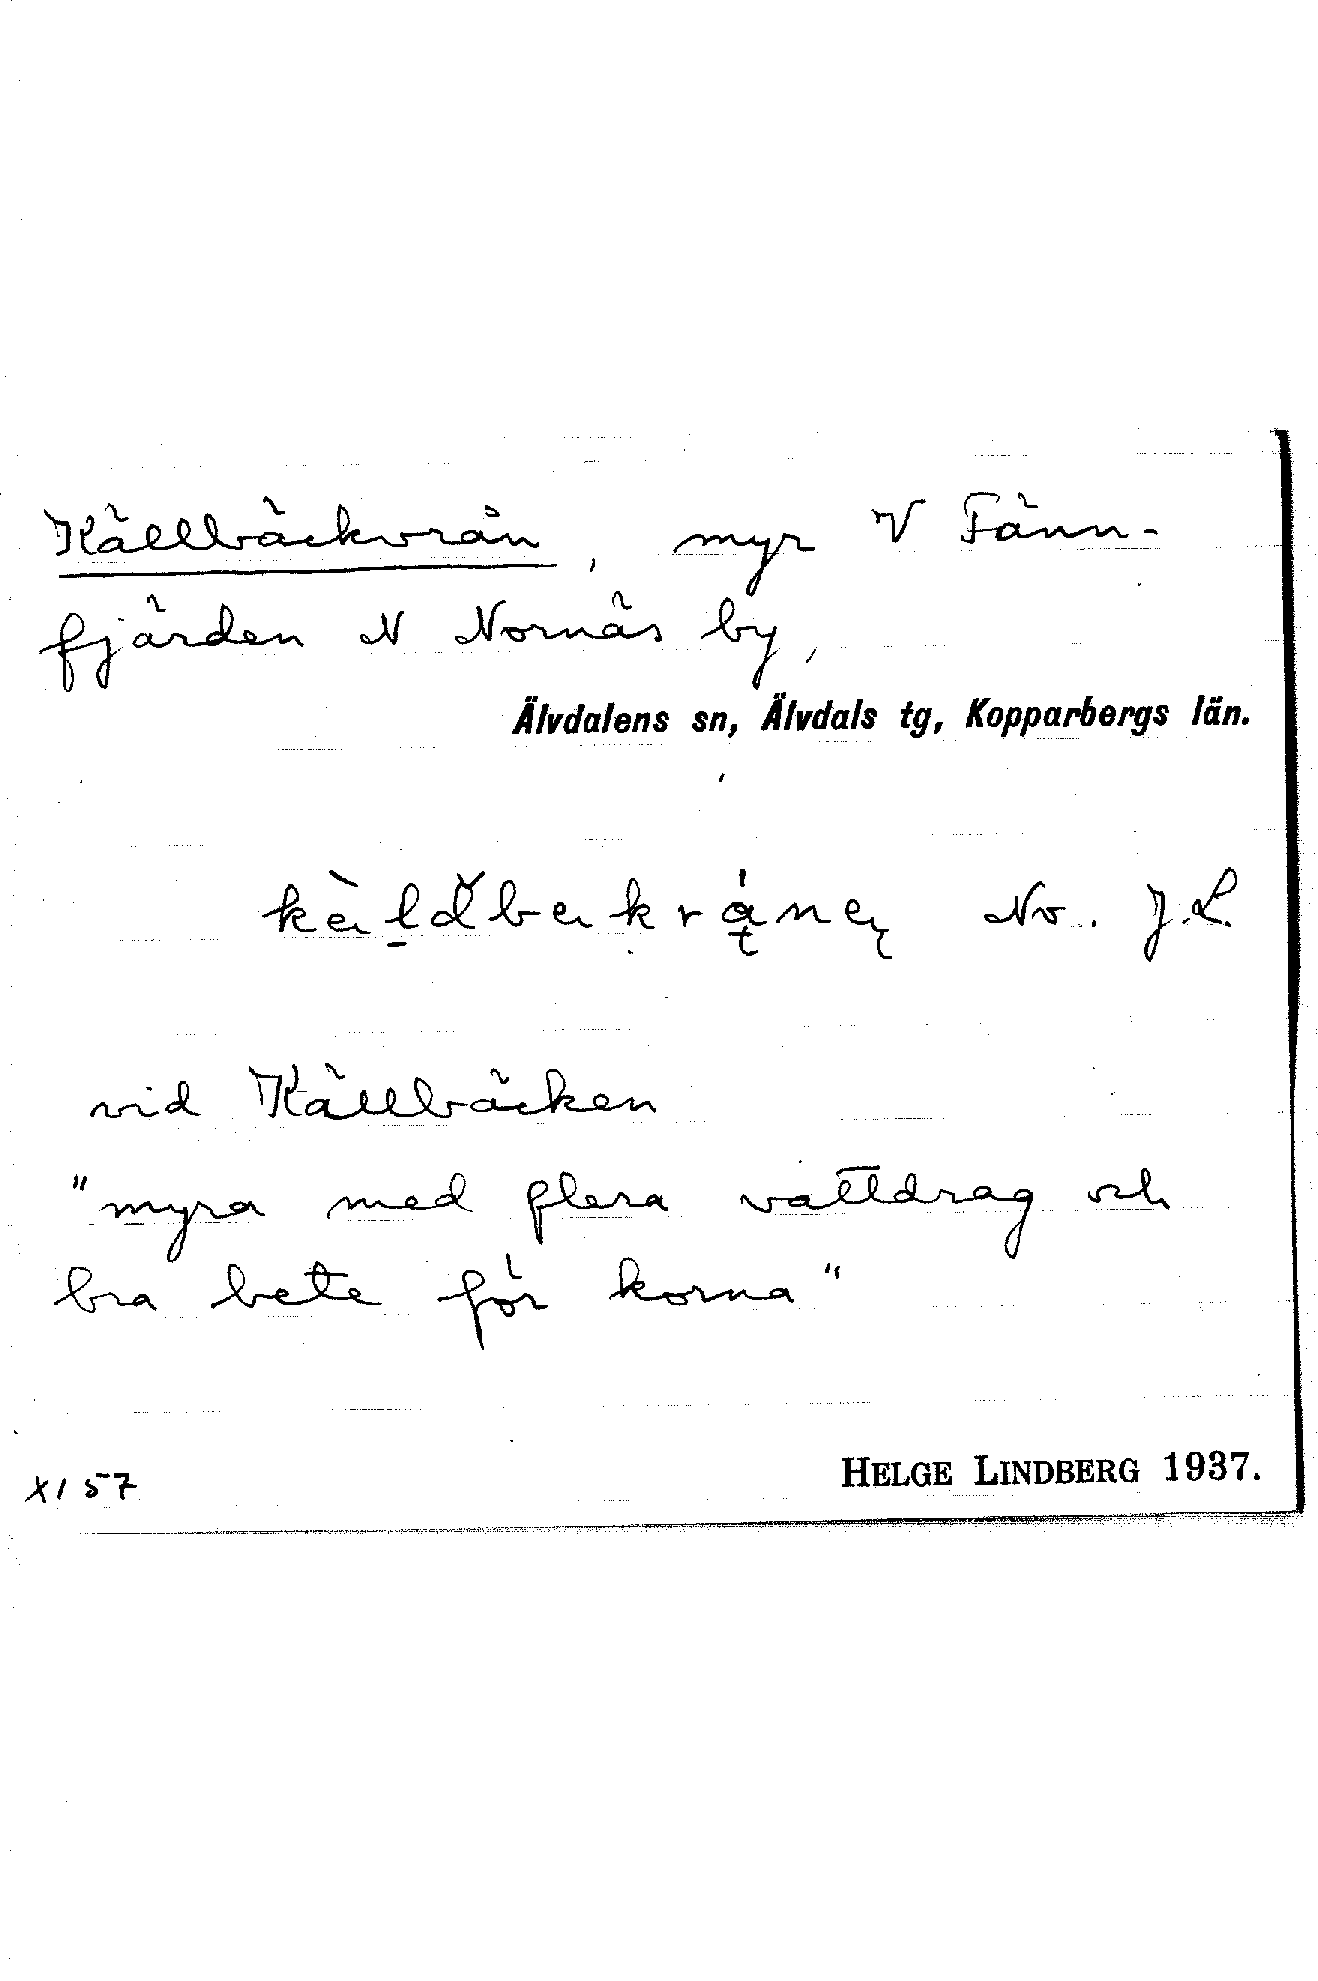 Källbäckvrån, myr V Fänn-
fjärden N Nornäs by,
Älvdalens sn, Älvdals tg, Kopparbergs län.
No. J.L.
vid Källbäcken
"myra med flera vattdrag och
bra bete för korna"
XI 57
HELGE LINDBERG 1937.